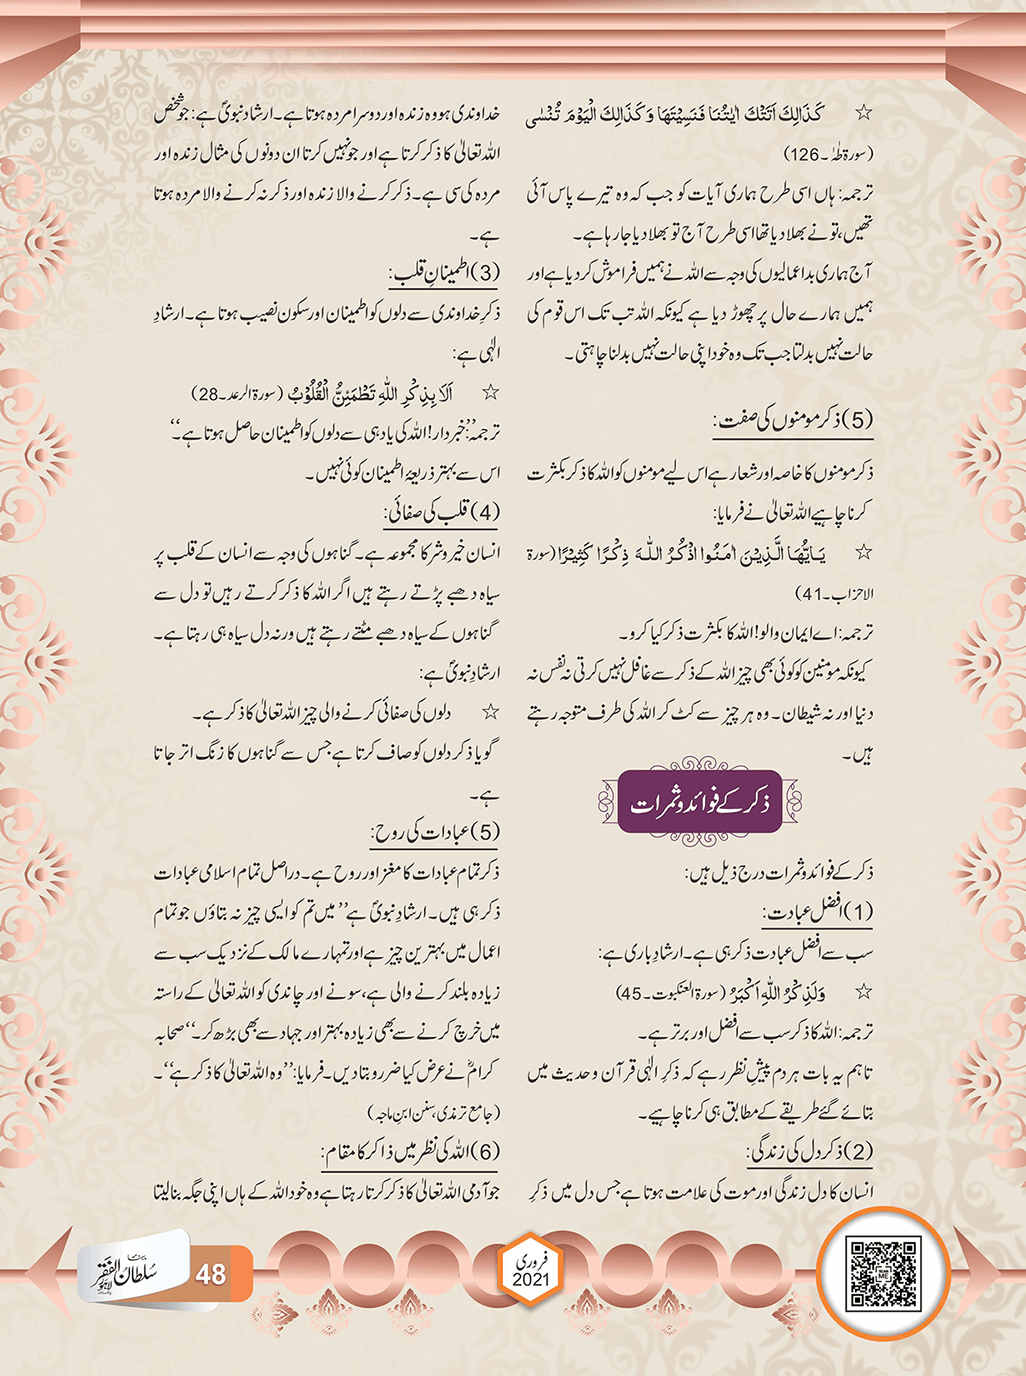 ☆ کَذَالِکَ اَتَتْکَ اٰیٰتُنَا فَنَسِیْتَھَا وَکَذَالِکَ الْیَوْمَ تُنْسٰی
(سورۃ طٰہٰ۔126)
ترجمہ: ہاں اسی طرح ہماری آیات کو جب کہ وہ تیرے پاس آئی
تھیں، تو نے بھلا دیا تھا اسی طرح آج تو بھلا دیا جا رہا ہے۔
آج ہماری بداعمالیوں کی وجہ سے اللہ نے ہمیں فراموش کر دیا ہے اور
ہمیں ہمارے حال پر چھوڑ دیا ہے کیونکہ اللہ تب تک اس قوم کی
حالت نہیں بدلتا جب تک وہ خود اپنی حالت نہیں بدلنا چاہتی۔
(5) ذکر مومنوں کی صفت:
ذکر مومنوں کا خاصہ اور شعار ہے اس لیے مومنوں کو اللہ کا ذکر بکثرت
کرنا چاہیے اللہ تعالیٰ نے فرمایا:
☆ یَاَیُّھَا الَّذِیْنَ اٰمَنُوا اذْکُرُ اللّٰہَ ذِکْرًا کَثِیْرًا (سورۃ
الاحزاب۔41)
ترجمہ: اے ایمان والو! اللہ کا بکثرت ذکر کیا کرو۔
کیونکہ مومنین کو کوئی بھی چیز اللہ کے ذکر سے غافل نہیں کرتی نہ نفس نہ
دنیا اور نہ شیطان۔ وہ ہر چیز سے کٹ کر اللہ کی طرف متوجہ رہتے
ہیں۔
ذکر کے فوائد و ثمرات
ذکر کے فوائد و ثمرات درج ذیل ہیں:
(1) افضل عبادت:
سب سے افضل عبادت ذکر ہی ہے۔ ارشادِ باری ہے:
☆ وَلَذِکْرُ اللّٰہِ اَکْبَرُ (سورۃ العنکبوت۔45)
ترجمہ: اللہ کا ذکر سب سے افضل اور برتر ہے۔
تاہم یہ بات ہر دم پیشِ نظر رہے کہ ذکرِ الٰہی قرآن و حدیث میں
بتائے گئے طریقے کے مطابق ہی کرنا چاہیے۔
(2) ذکر دل کی زندگی:
انسان کا دل زندگی اور موت کی علامت ہوتا ہے جس دل میں ذکرِ
خداوندی ہو وہ زندہ اور دوسرا مردہ ہوتا ہے۔ ارشادِ نبویؐ ہے: جو شخص
اللہ تعالیٰ کا ذکر کرتا ہے اور جو نہیں کرتا ان دونوں کی مثال زندہ اور
مردہ کی سی ہے۔ ذکر کرنے والا زندہ اور ذکر نہ کرنے والا مردہ ہوتا
ہے۔
(3) اطمینانِ قلب:
ذکرِ خداوندی سے دلوں کو اطمینان اور سکون نصیب ہوتا ہے۔ ارشادِ
الٰہی ہے:
☆ اَلاَ بِذِکْرِ اللّٰہِ تَطْمَئِنُّ الْقُلُوْبُ (سورۃ الرعد۔28)
ترجمہ: ’’خبردار! اللہ کی یاد ہی سے دلوں کو اطمینان حاصل ہوتا ہے۔‘‘
اس سے بہتر ذریعۂ اطمینان کوئی نہیں۔
(4) قلب کی صفائی:
انسان خیر و شر کا مجموعہ ہے۔ گناہوں کی وجہ سے انسان کے قلب پر
سیاہ دھبے پڑتے رہتے ہیں اگر اللہ کا ذکر کرتے رہیں تو دل سے
گناہوں کے سیاہ دھبے مٹتے رہتے ہیں ورنہ دل سیاہ ہی رہتا ہے۔
ارشادِ نبویؐ ہے:
☆ دلوں کی صفائی کرنے والی چیز اللہ تعالیٰ کا ذکر ہے۔
گویا ذکر دلوں کو صاف کرتا ہے جس سے گناہوں کا زنگ اتر جاتا
ہے۔
(5) عبادات کی روح:
ذکر تمام عبادات کا مغز اور روح ہے۔ دراصل تمام اسلامی عبادات
ذکر ہی ہیں۔ ارشادِ نبویؐ ہے ’’میں تم کو ایسی چیز نہ بتاؤں جو تمام
اعمال میں بہترین چیز ہے اور تمہارے مالک کے نزدیک سب سے
زیادہ بلند کرنے والی ہے، سونے اور چاندی کو اللہ تعالیٰ کے راستہ
میں خرچ کرنے سے بھی زیادہ بہتر اور جہاد سے بھی بڑھ کر۔‘‘ صحابہ
کرامؓ نے عرض کیا ضرور بتا دیں۔ فرمایا: ’’وہ اللہ تعالیٰ کا ذکر ہے‘‘۔
(جامع ترمذی، سنن ابنِ ماجہ)
(6) اللہ کی نظر میں ذاکر کا مقام:
جو آدمی اللہ تعالیٰ کا ذکر کرتا رہتا ہے وہ خود اللہ کے ہاں اپنی جگہ بنا لیتا
ماہنامہ
سُلطان الفقر
لاہور
48
فروری
2021